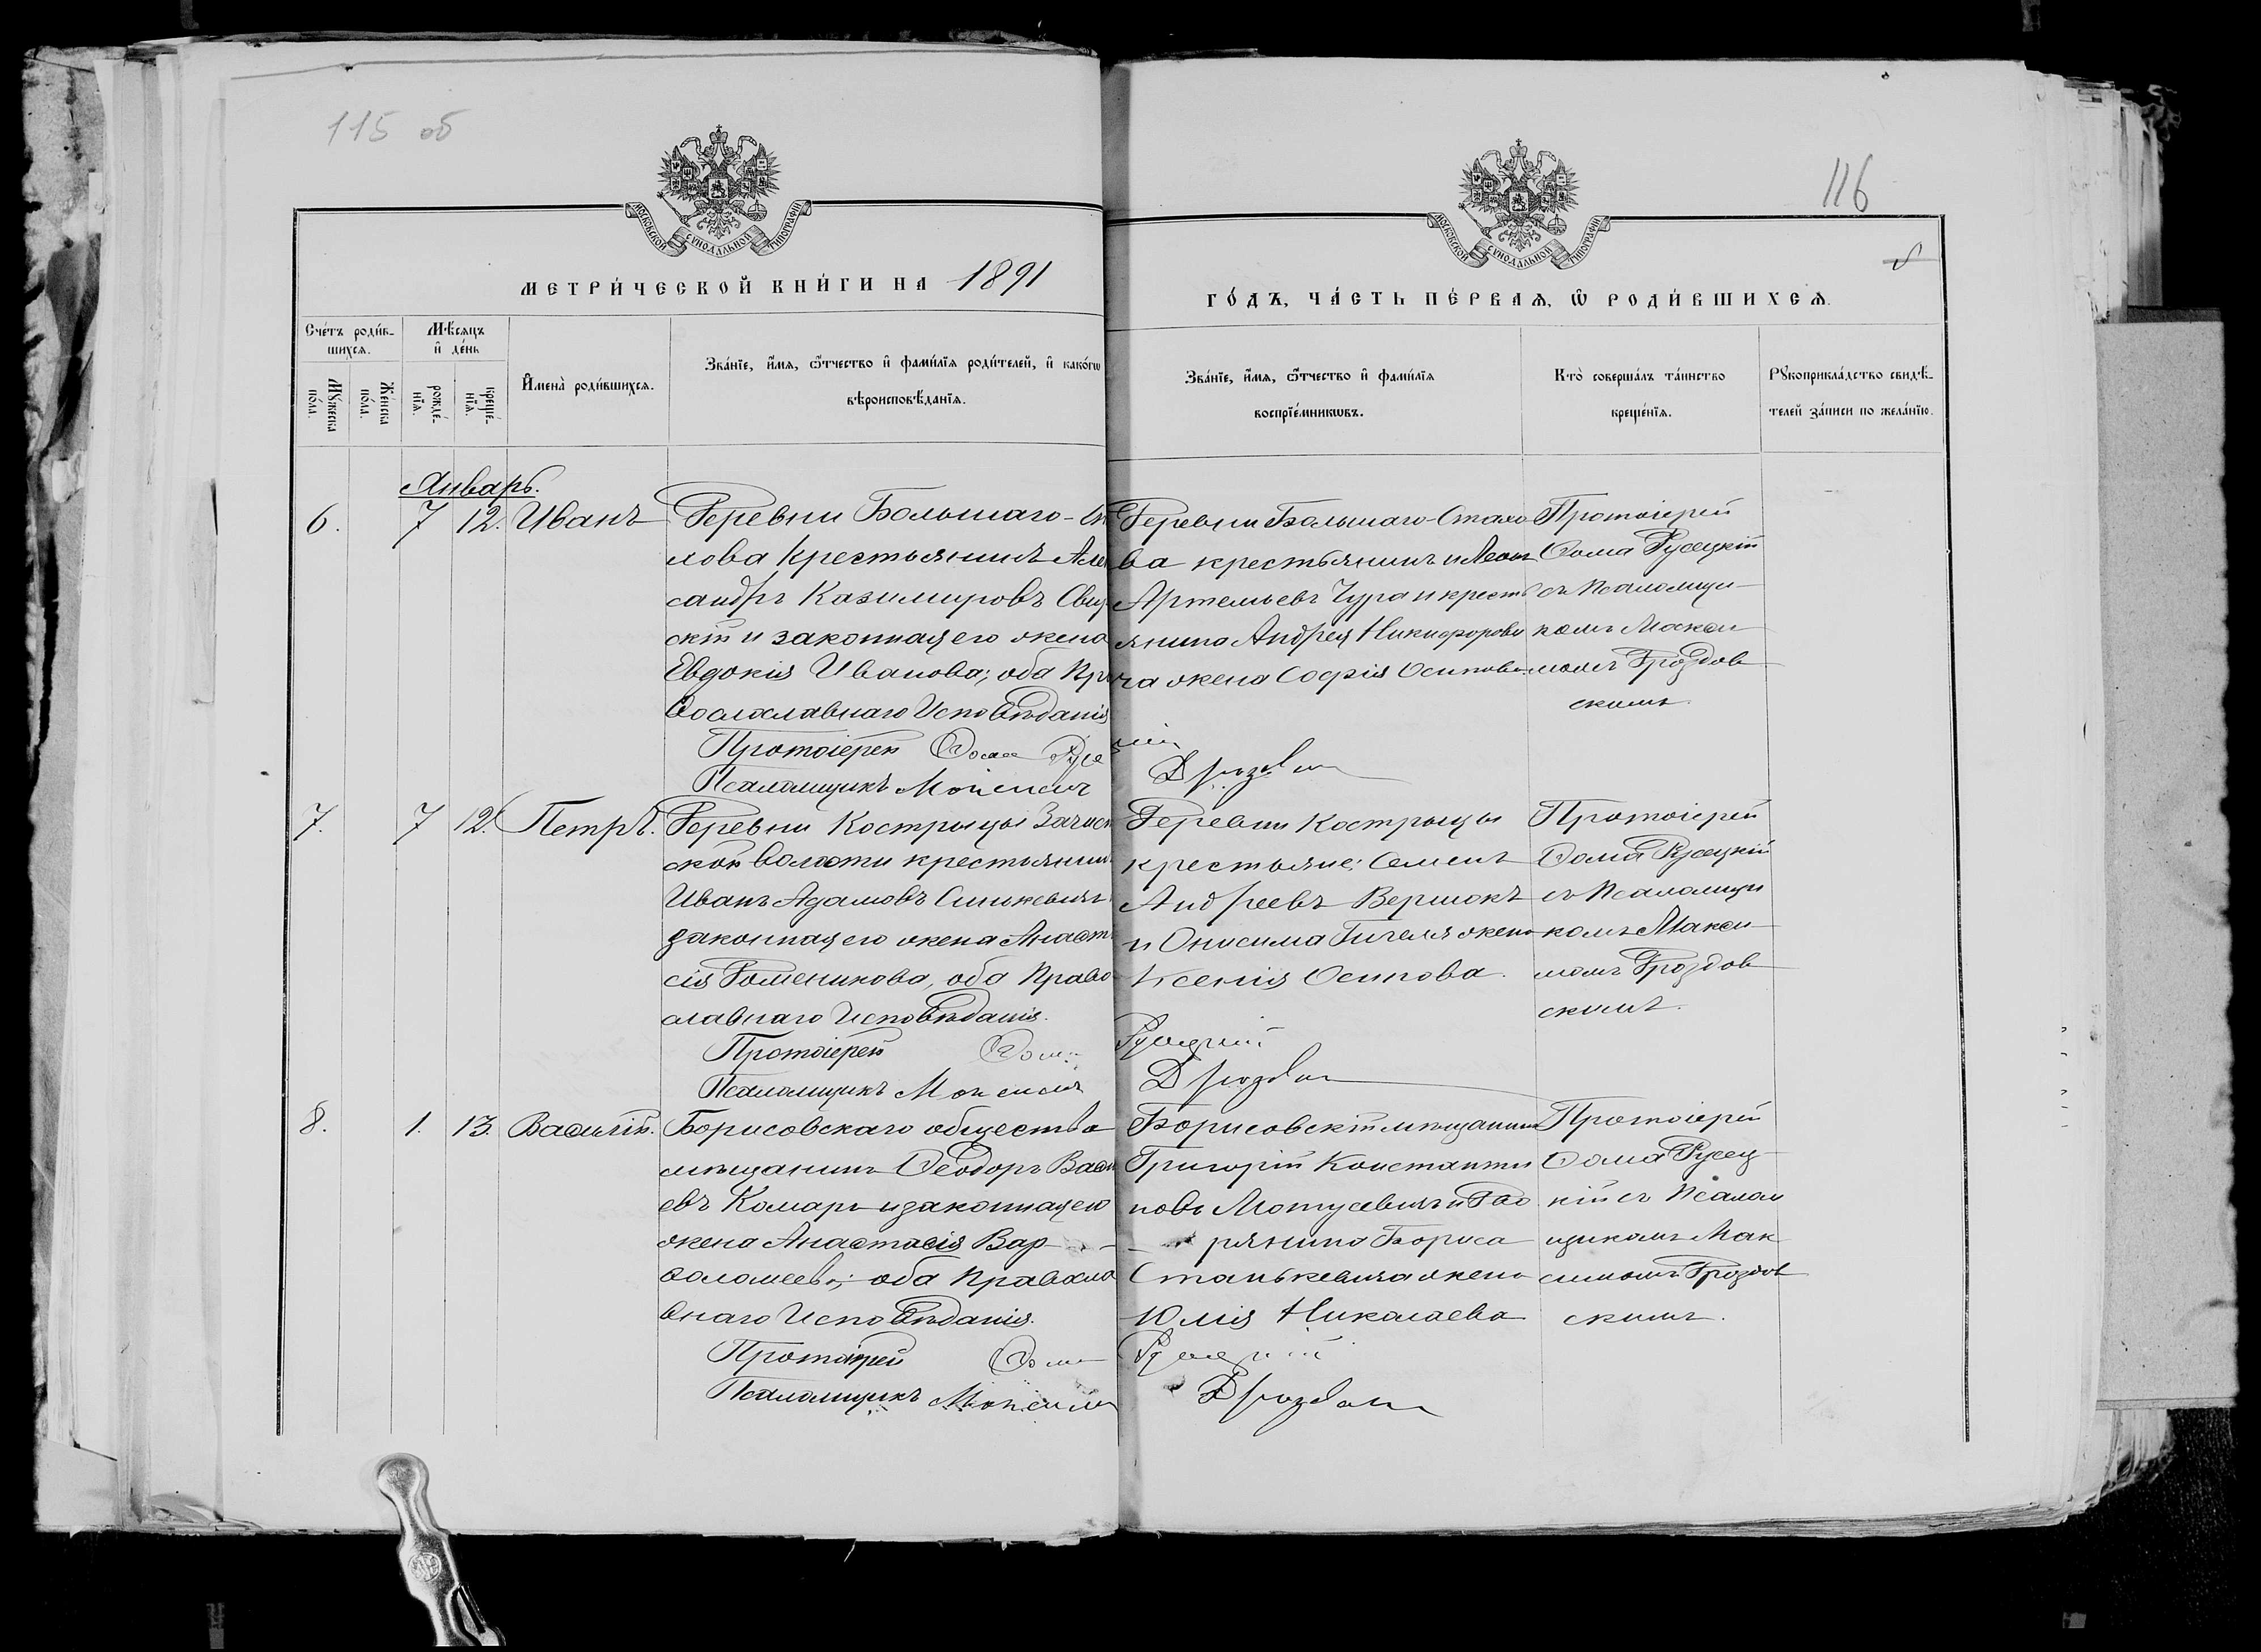 115 об
116
МОСКОВСКОЙ СУНОДАЛЬНОЙ ТИПОГРАФІИ
МОСКОВСКОЙ СУНОДАЛЬНОЙ ТИПОГРАФІИ
МЕТРИ́ЧЕСКОЙ КНИ́ГИ НА 1891
ГО́ДЪ, ЧА́СТЬ ПЕ́РВАЯ, Ѡ РОДИ́ВШИХСЯ.
Сче́тъ роди́в-
шихся.
Мѣ́сяцъ
и де́нь
Му́жеска
по́ла.
Же́нска
по́ла.
рожде́-
нїя.
креще́-
нїя.
Имена̀ роди́вшихся.
Зва́нїе, и́мя, ѻ́тчество и фами́лїя роди́телей, и како́гѡ
вѣроисповѣ́данїя.
Зва́нїе, и́мя, ѻ́тчество и фами́лїя
воспрїе́мникѡвъ.
Кто̀ соверша́лъ та́инство
креще́нїя.
Рукоприкла́дство свидѣ́-
телей за́писи по жела́нїю.
Январь.
6. 7 12. Иванъ
Деревни Большаго-Ст
хова крестьянинъ Алек
сандръ Казимировъ Свид
скій и законная его жена
Евдокія Иванова; оба Пра
вославнаго Исповѣданія
Протоіерей Ѳома Русе
цкій
Псаломщикъ Максим
Дроздов
Деревни Большаго-Стахо
ва крестьянинъ
Артемьевъ Чура и кресть
янина Андрея Никифорови
ча жена Софія Осипова
Протоіерей
Ѳома Русецкій
съ Псаломщи
комъ Макси
момъ Дроздов
скимъ.
7. 7 12. Петръ.
Деревни Кострицы Зачист
ской волости крестьянинъ
Иванъ Адамовъ Синкевичъ
законная его жена Анаст
сія Доменикова, оба Право
славнаго Исповѣданія.
Протоіерей Ѳома
Русецкій
Псаломщикъ Максим
Дроздов
Деревни Кострицы
крестьяне: Семенъ
Андреевъ Вершокъ
и Онисима Гичеля жена
Ксенія Осипова.
Протоіерей
Ѳома Русецкій
съ Псаломщи
комъ Макси
момъ Дроздов
скимъ.
8. 1. 13. Василій.
Борисовскаго общества
мѣщанинъ Ѳеодоръ Васи
евъ Комаръ и законная его
жена Анастасія Вар
ѳоломеева; оба Правосла
внаго Исповѣданія.
Протоіерей Ѳома
Русецкій
Псаломщикъ Максим
Дроздов
Борисовскій мѣщанинъ
Григорій Константи
новъ Матусевичъ и Дво
рянина Бориса
Станкевича жена
Юлія Николаева
Протоіерей
Ѳома Русец
кій съ Псалом
щикомъ Мак
симомъ Дроздов
скимъ.